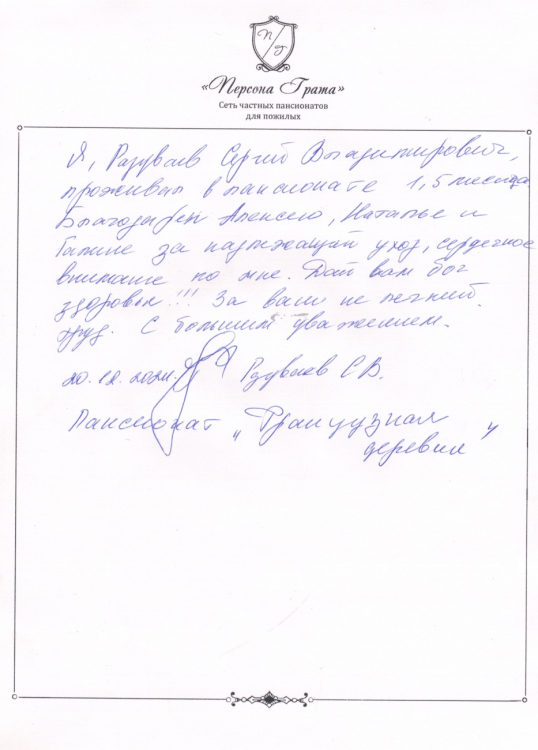 П Г
«Персона Грата»
Сеть частных пансионатов
для пожилых
Я, Разуваев Сергей Владимирович,
проживал в пансионате 1,5 месяца
Благодарен Алексею, Наталье и
Галине за надлежащий уход, сердечное
внимание ко мне. Дай вам бог
здоровья!!! За ваш не легкий
труд. С большим уважением.
20.12.2024. Разуваев С В.
Пансионат „Французская
деревня"